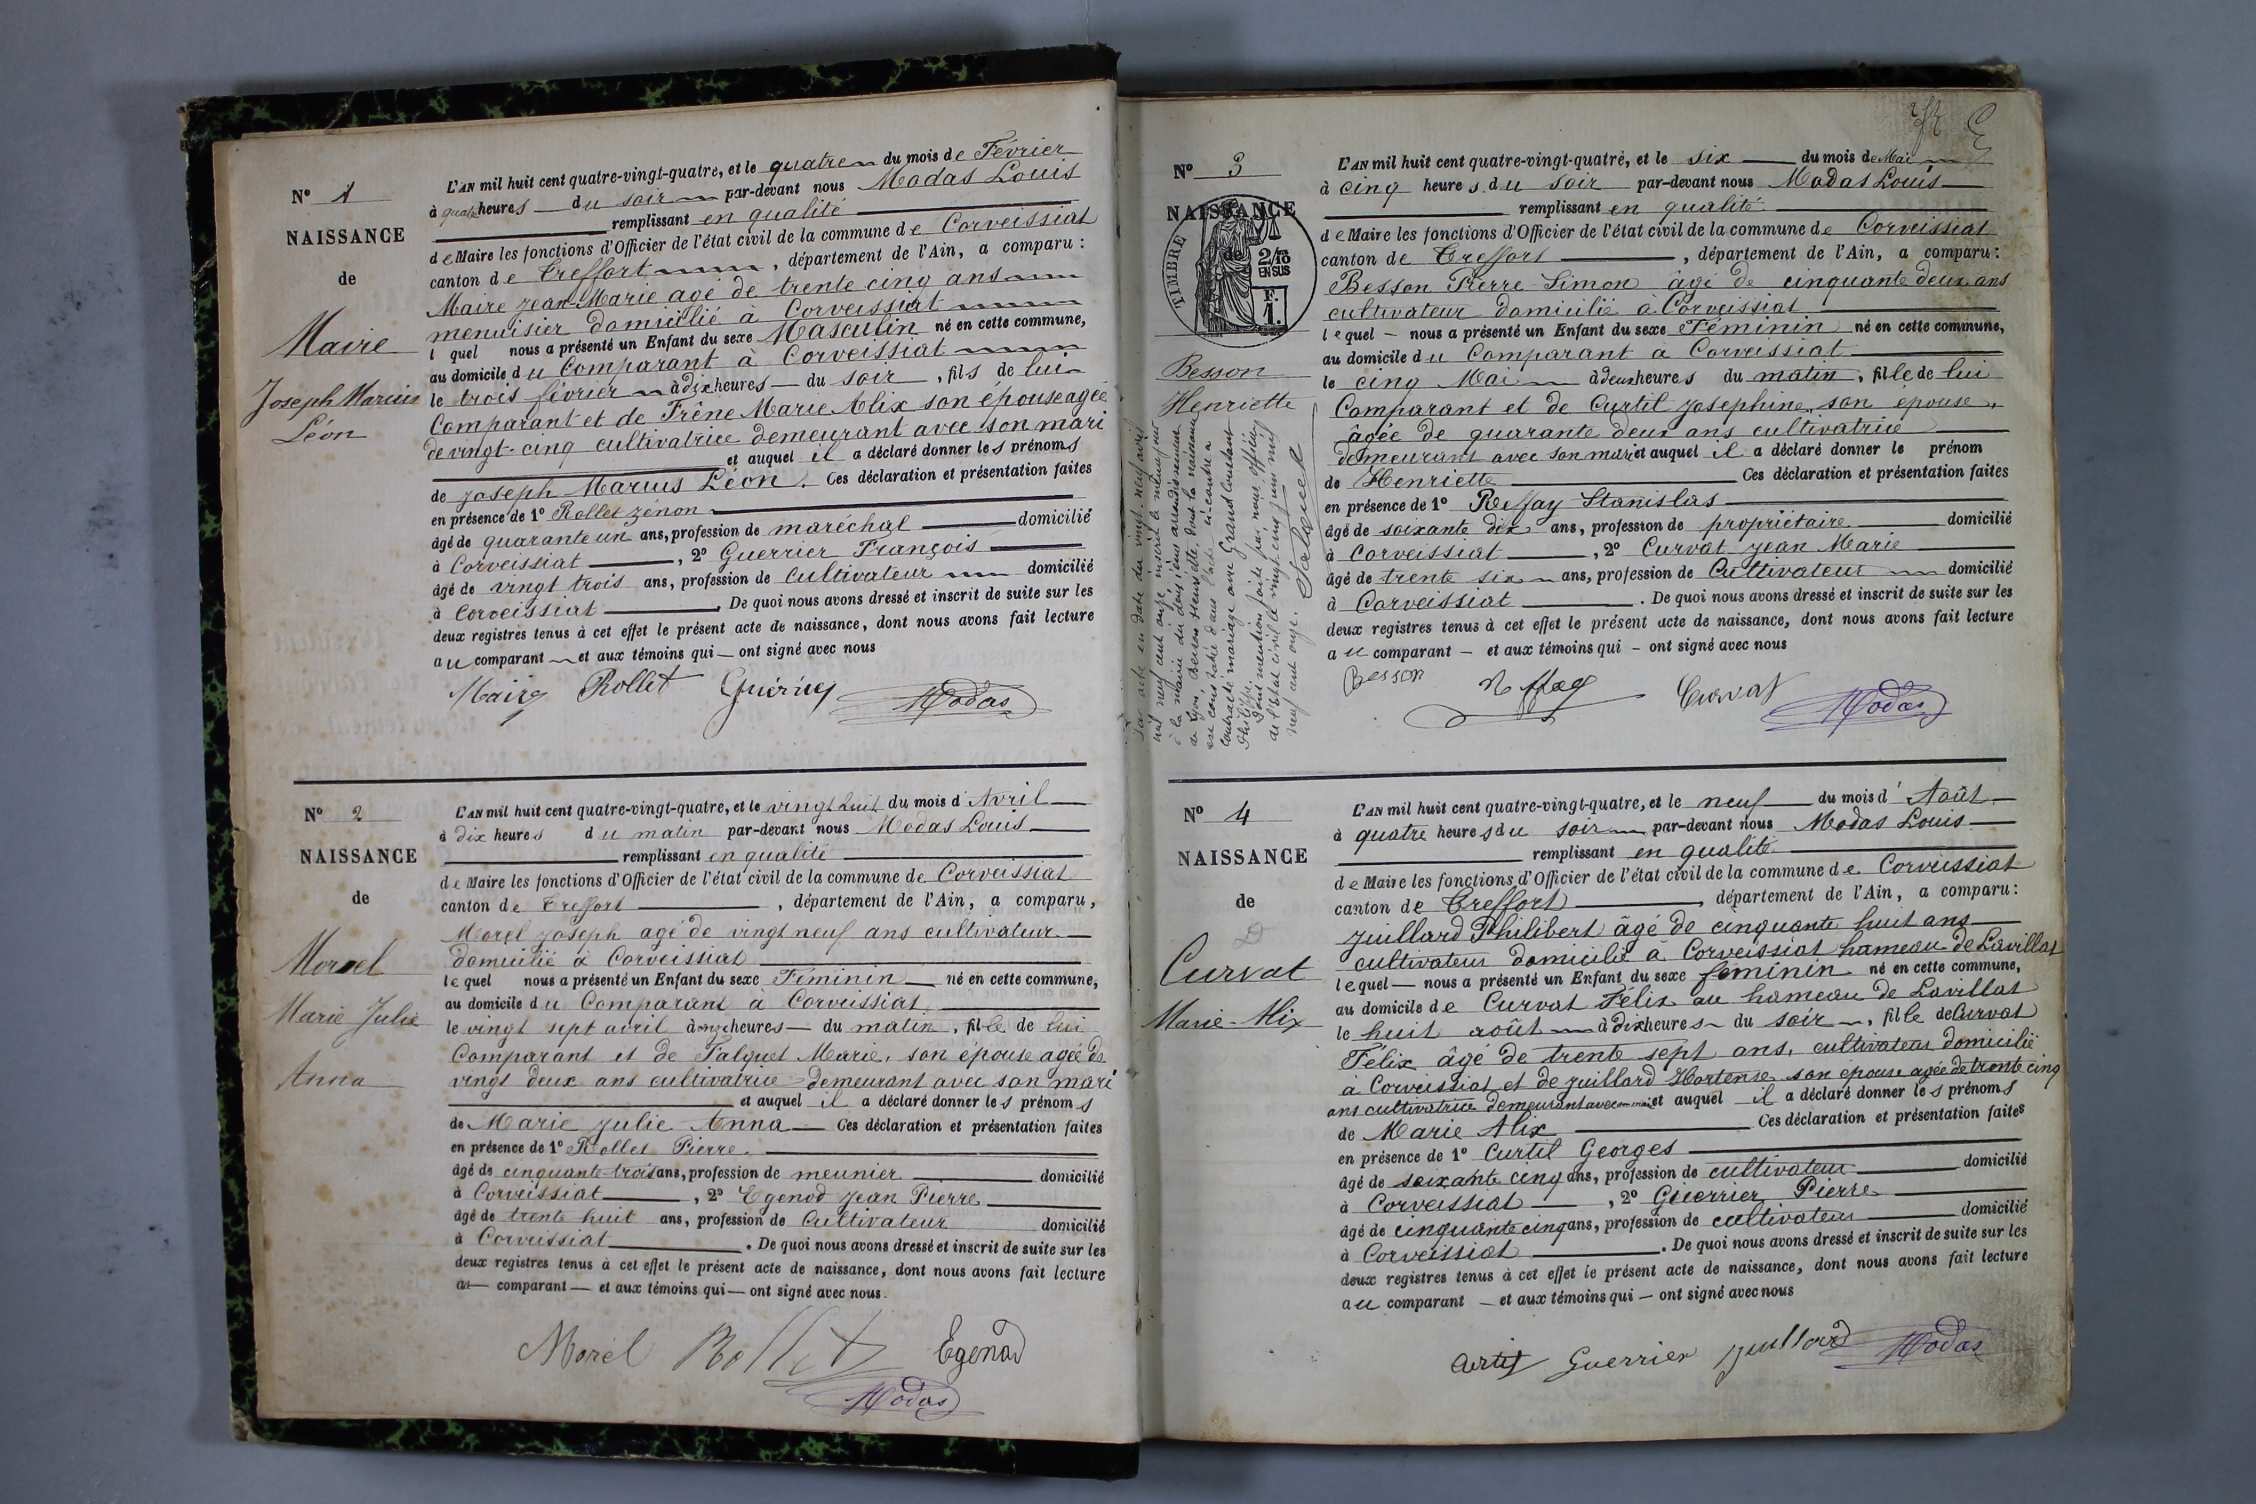 N° 1
NAISSANCE
de
Maire
Joseph Marius
Léon
L'AN mil huit cent quatre-vingt-quatre, et le quatre du mois de Février
à quatre heures du soir par-devant nous Modas Louis
remplissant en qualité
de Maire les fonctions d'Officier de l'état civil de la commune de Corveissiat
canton de Treffort, département de l'Ain, a comparu :
Maire Jean-Marie agé de trente cinq ans
menuisier domicilié à Corveissiat
l quel nous a présenté un Enfant du sexe Masculin né en cette commune,
au domicile du Comparant à Corveissiat
le trois février à dix heures du soir, fils de lui
Comparant et de Frêne Marie Alix son épouse agée
de vingt-cinq cultivatrice demeurant avec son mari
et auquel il a déclaré donner les prénoms
de Joseph Marius Léon. Ces déclaration et présentation faites
en présence de 1° Rollet Zénon
âgé de quarante un ans, profession de maréchal domicilié
à Corveissiat, 2° Guerrier François
âgé de vingt trois ans, profession de Cultivateur domicilié
à Corveissiat. De quoi nous avons dressé et inscrit de suite sur les
deux registres tenus à cet effet le présent acte de naissance, dont nous avons fait lecture
au comparant et aux témoins qui ont signé avec nous
Maire Rollet Guérrier Modas
N° 2
NAISSANCE
de
Morel
Marie Julie
Anna
L'AN mil huit cent quatre-vingt-quatre, et le vingt huit du mois d'Avril
à dix heures du matin par-devant nous Modas Louis
remplissant en qualité
de Maire les fonctions d'Officier de l'état civil de la commune de Corveissiat
canton de Treffort, département de l'Ain, a comparu,
Morel Joseph agé de vingt neuf ans cultivateur
domicilié à Corveissiat
lequel nous a présenté un Enfant du sexe Féminin né en cette commune,
au domicile du Comparant à Corveissiat
le vingt sept avril à onze heures du matin, fille de lui
Comparant et de Falquet Marie, son épouse agée de
vingt deux ans cultivatrice demeurant avec son mari
et auquel il a déclaré donner les prénoms
de Marie Julie Anna Ces déclaration et présentation faites
en présence de 1° Rollet Pierre
âgé de cinquante trois ans, profession de meunier domicilié
à Corveissiat, 2° Egenod Jean Pierre
âgé de trente huit ans, profession de Cultivateur domicilié
à Corveissiat. De quoi nous avons dressé et inscrit de suite sur les
deux registres tenus à cet effet le présent acte de naissance, dont nous avons fait lecture
au comparant et aux témoins qui ont signé avec nous.
Morel Rollet Egenod
Modas
N° 3
NAISSANCE
de
TIMBRE
2/10
EN SUS
F.
1.
Besson
Henriette
Par acte en date du vingt neuf avril
mil neuf cent onze inscrit le même jour
à la mairie du deuxième arrondissement
de Lyon, Besson Henriette, dont la naissance
est constatée dans l'acte ci-contre a
contracté mariage avec Grand Constant
Philippe.
Dont mention faite par nous officier
de l'état civil le vingt cinq juin mil
neuf cent onze.
L'AN mil huit cent quatre-vingt-quatre, et le six du mois de Mai
à cinq heures du soir par-devant nous Modas Louis
remplissant en qualité
de Maire les fonctions d'Officier de l'état civil de la commune de Corveissiat
canton de Treffort, département de l'Ain, a comparu:
Besson Pierre-Simon âgé de cinquante deux ans
cultivateur domicilié à Corveissiat
lequel nous a présenté un Enfant du sexe Féminin né en cette commune,
au domicile du Comparant à Corveissiat
le cinq Mai à deux heures du matin, fille de lui
Comparant et de Curtil Josephine, son épouse,
âgée de quarante deux ans cultivatrice
demeurant avec son mari et auquel il a déclaré donner le prénom
de Henriette Ces déclaration et présentation faites
en présence de 1° Reffay Stanislas
âgé de soixante dix ans, profession de propriétaire domicilié
à Corveissiat, 2° Curvat Jean Marie
âgé de trente six ans, profession de Cultivateur domicilié
à Corveissiat. De quoi nous avons dressé et inscrit de suite sur les
deux registres tenus à cet effet le présent acte de naissance, dont nous avons fait lecture
au comparant et aux témoins qui ont signé avec nous
Besson Reffay Curvat Modas
N° 4
NAISSANCE
de
Curvat
Marie-Alix
L'AN mil huit cent quatre-vingt-quatre, et le neuf du mois d'Août
à quatre heures du soir par-devant nous Modas Louis
remplissant en qualité
de Maire les fonctions d'Officier de l'état civil de la commune de Corveissiat
canton de Treffort, département de l'Ain, a comparu:
Juillard Philibert âgé de cinquante huit ans
cultivateur domicilié à Corveissiat hameau de Lavillat
lequel nous a présenté un Enfant du sexe féminin né en cette commune,
au domicile de Curvat Félix au hameau de Lavillat
le huit août à dix heures du soir, fille de Curvat
Félix âgé de trente sept ans, cultivateur domicilié
à Corveissiat et de Juillard Hortense son épouse agée de trente cinq
ans cultivatrice demeurant avec son mari et auquel il a déclaré donner les prénoms
de Marie Alix Ces déclaration et présentation faites
en présence de 1° Curtil Georges
âgé de soixante cinq ans, profession de cultivateur domicilié
à Corveissiat, 2° Guerrier Pierre
âgé de cinquante cinq ans, profession de cultivateur domicilié
à Corveissiat. De quoi nous avons dressé et inscrit de suite sur les
deux registres tenus à cet effet le présent acte de naissance, dont nous avons fait lecture
au comparant et aux témoins qui ont signé avec nous
Guerrier Juillard Modas